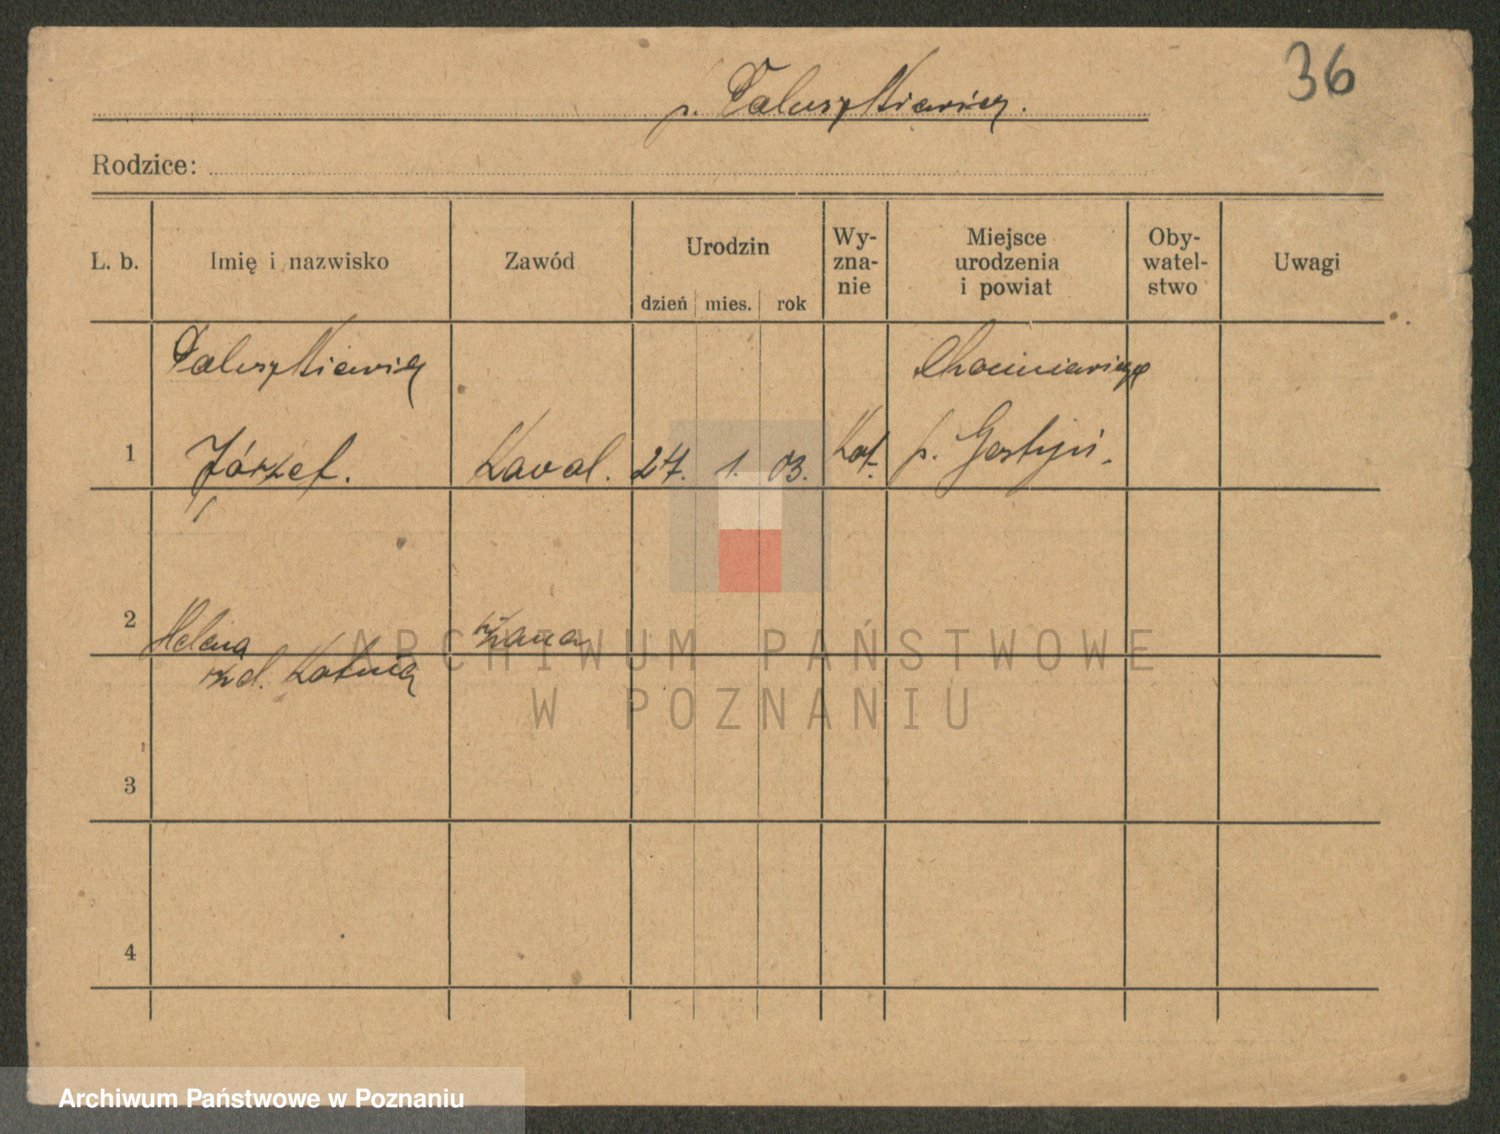 36
p. Paluszkiewicz.
Rodzice:
L. b. Imię i nazwisko Zawód Urodzin dzień mies. rok Wy-zna-nie Miejsce urodzenia i powiat Oby-watel-stwo Uwagi
Paluszkiewicz
1 Józef. Kowal. 27. 1. 03. Kat. p. Gostyń.
2 Helena żona
zd.
3
4
ARCHIWUM PAŃSTWOWE
W POZNANIU
Archiwum Państwowe w Poznaniu